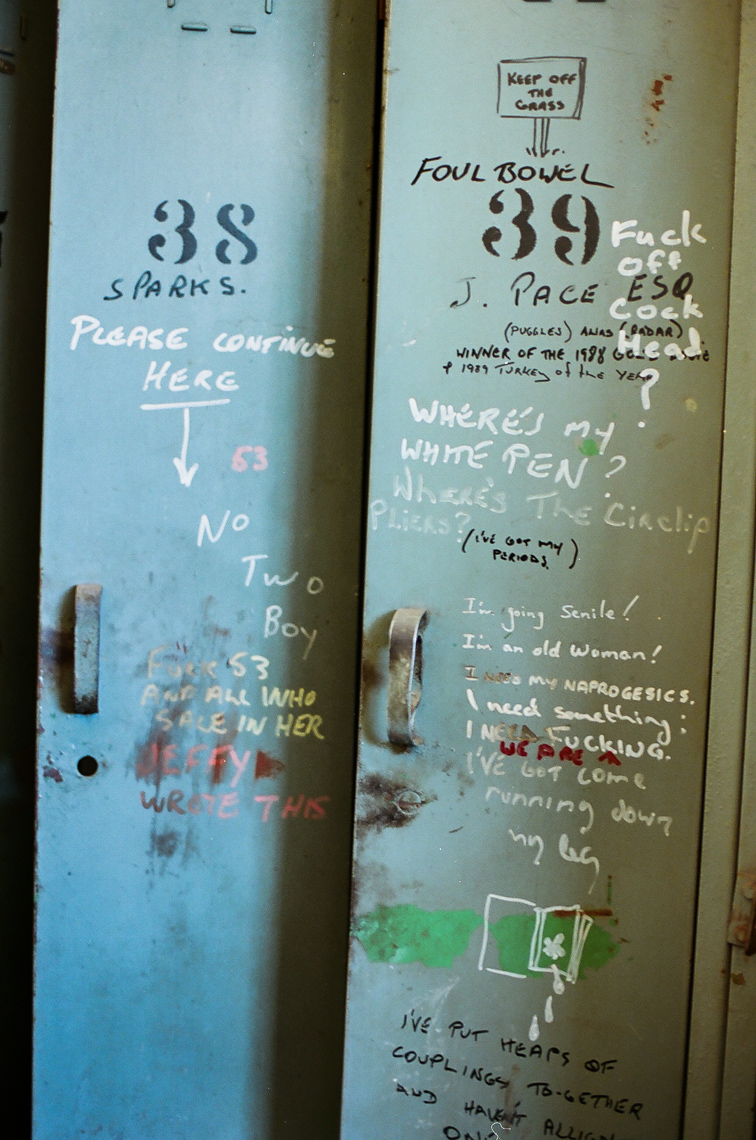 38
SPARKS.
PLEASE CONTINUE
HERE
53
NO
TWO
BOY
FUCK 53
AND ALL WHO
SALE IN HER
JEFFY
WROTE THIS
KEEP OFF
THE
GRASS
FOUL BOWEL
39
Fuck
off
Cock
Head
?
J. PACE ESQ
(PUGGLES) ALIAS (RADAR)
WINNER OF THE 1988
& 1989 TURKEY of the YEAR
WHERE'S MY
WHITE PEN?
WHERE'S THE Circlip
Pliers?
(I'VE GOT MY
PERIODS)
I'm going Senile!
I'm an old Woman!
I NEED MY NAPROGESICS.
I need something:
I NEED FUCKING.
WE ARE
I'VE GOT come
running down
my leg
I'VE PUT HEAPS OF
COUPLINGS TO-GETHER
AND HAVN'T ALLIGN